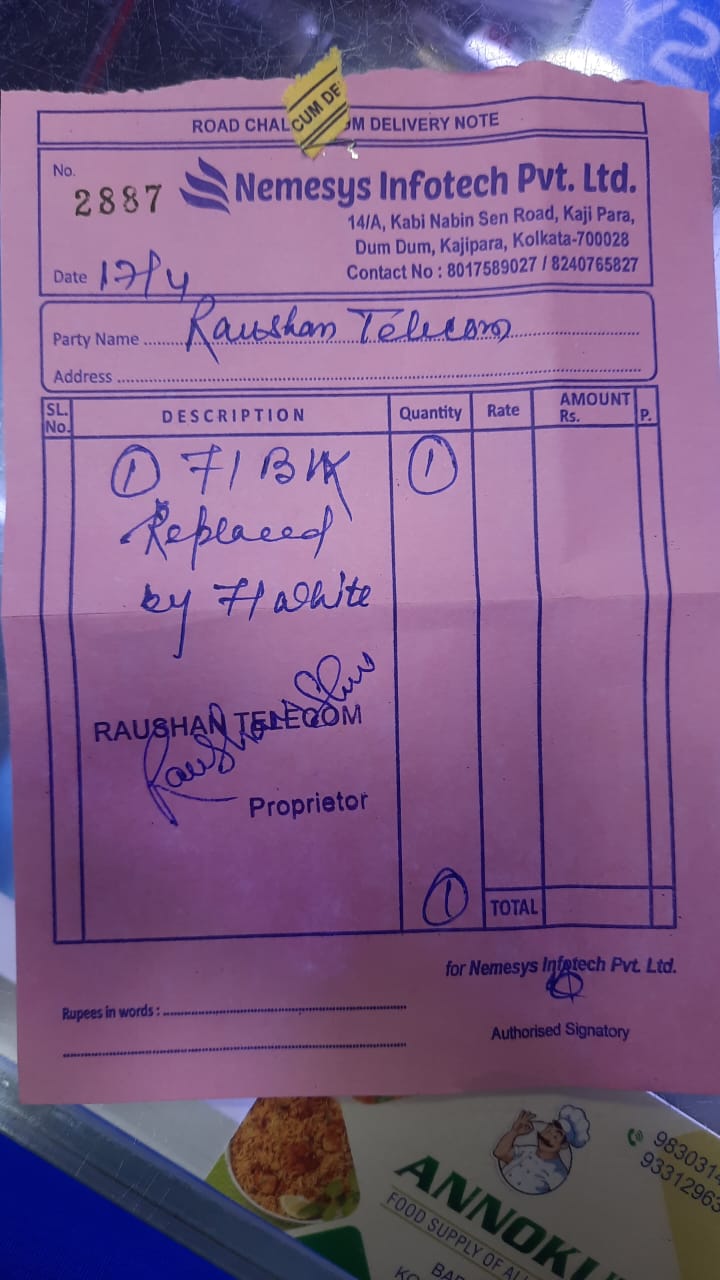 ROAD CHAL CUM DE M DELIVERY NOTE
No.
2887
Nemesys Infotech Pvt. Ltd.
14/A, Kabi Nabin Sen Road, Kaji Para,
Dum Dum, Kajipara, Kolkata-700028
Contact No : 8017589027 / 8240765827
Date 17/4
Party Name Raushan Telecom
Address
SL. No. DESCRIPTION Quantity Rate AMOUNT Rs. P.
① 71 BLK ①
Replaced
by 71 White
RAUSHAN TELECOM
Proprietor
① TOTAL
for Nemesys Infotech Pvt. Ltd.
Rupees in words :
Authorised Signatory
ANNOKU
FOOD SUPPLY OF AL
BAR
KO
983031
93312963